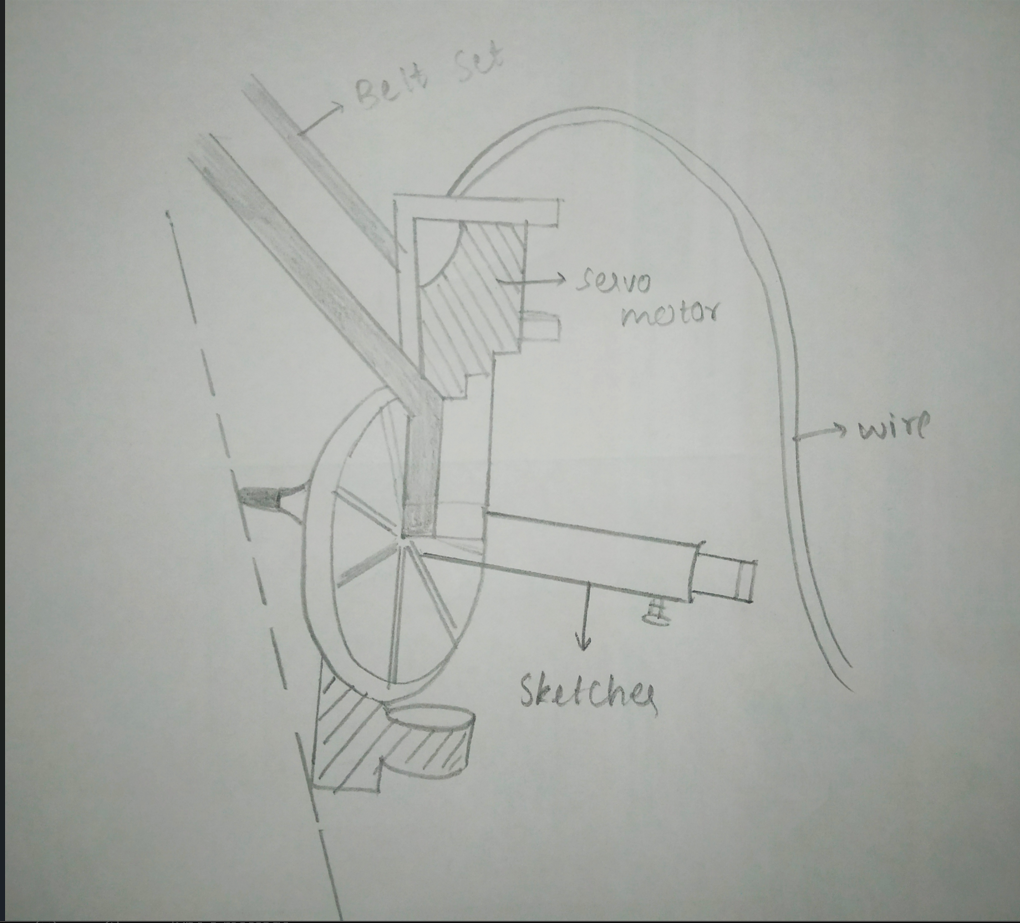 Belt Set
servo
motor
wire
Sketches